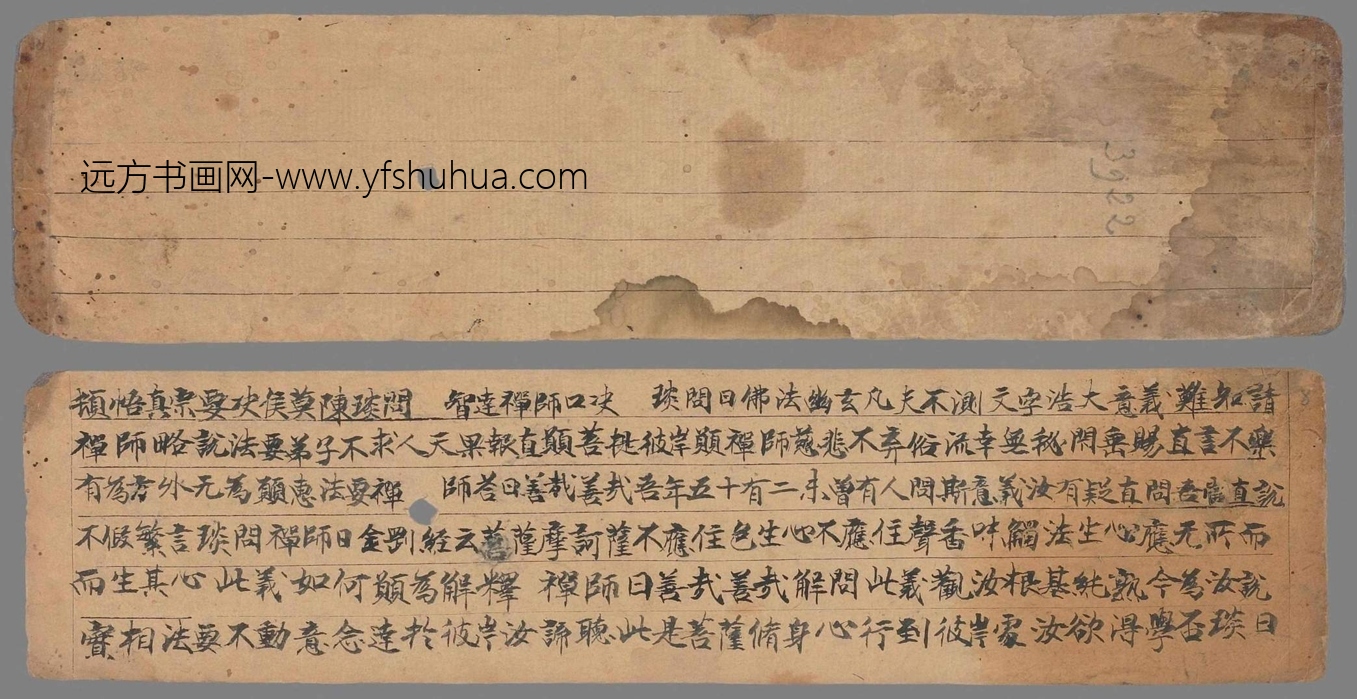 远方书画网-www.yfshuhua.com
3922
頓悟真宗要決侯莫陳琰問 智達禪師口決 琰問曰佛法幽玄凡夫不測文字浩大意義難知請
禪師略說法要弟子不求人天果報直願菩提彼岸願禪師慈悲不弃俗流幸無秘閇垂賜直言不樂
有為方外无為願惠法要禪 師荅曰善哉善哉吾年五十有二未曾有人問斯意義汝有疑直問吾直說
不假繁言琰問禪師曰金剛經云菩薩摩訶薩不應住色生心不應住聲香味觸法生心應无所而
而生其心此義如何願為解釋 禪師曰善哉善哉解問此義觀汝根基純熟今為汝說
實相法要不動意念達於彼岸汝諦聽此是菩薩脩身心行到彼岸處汝欲得學否琰曰